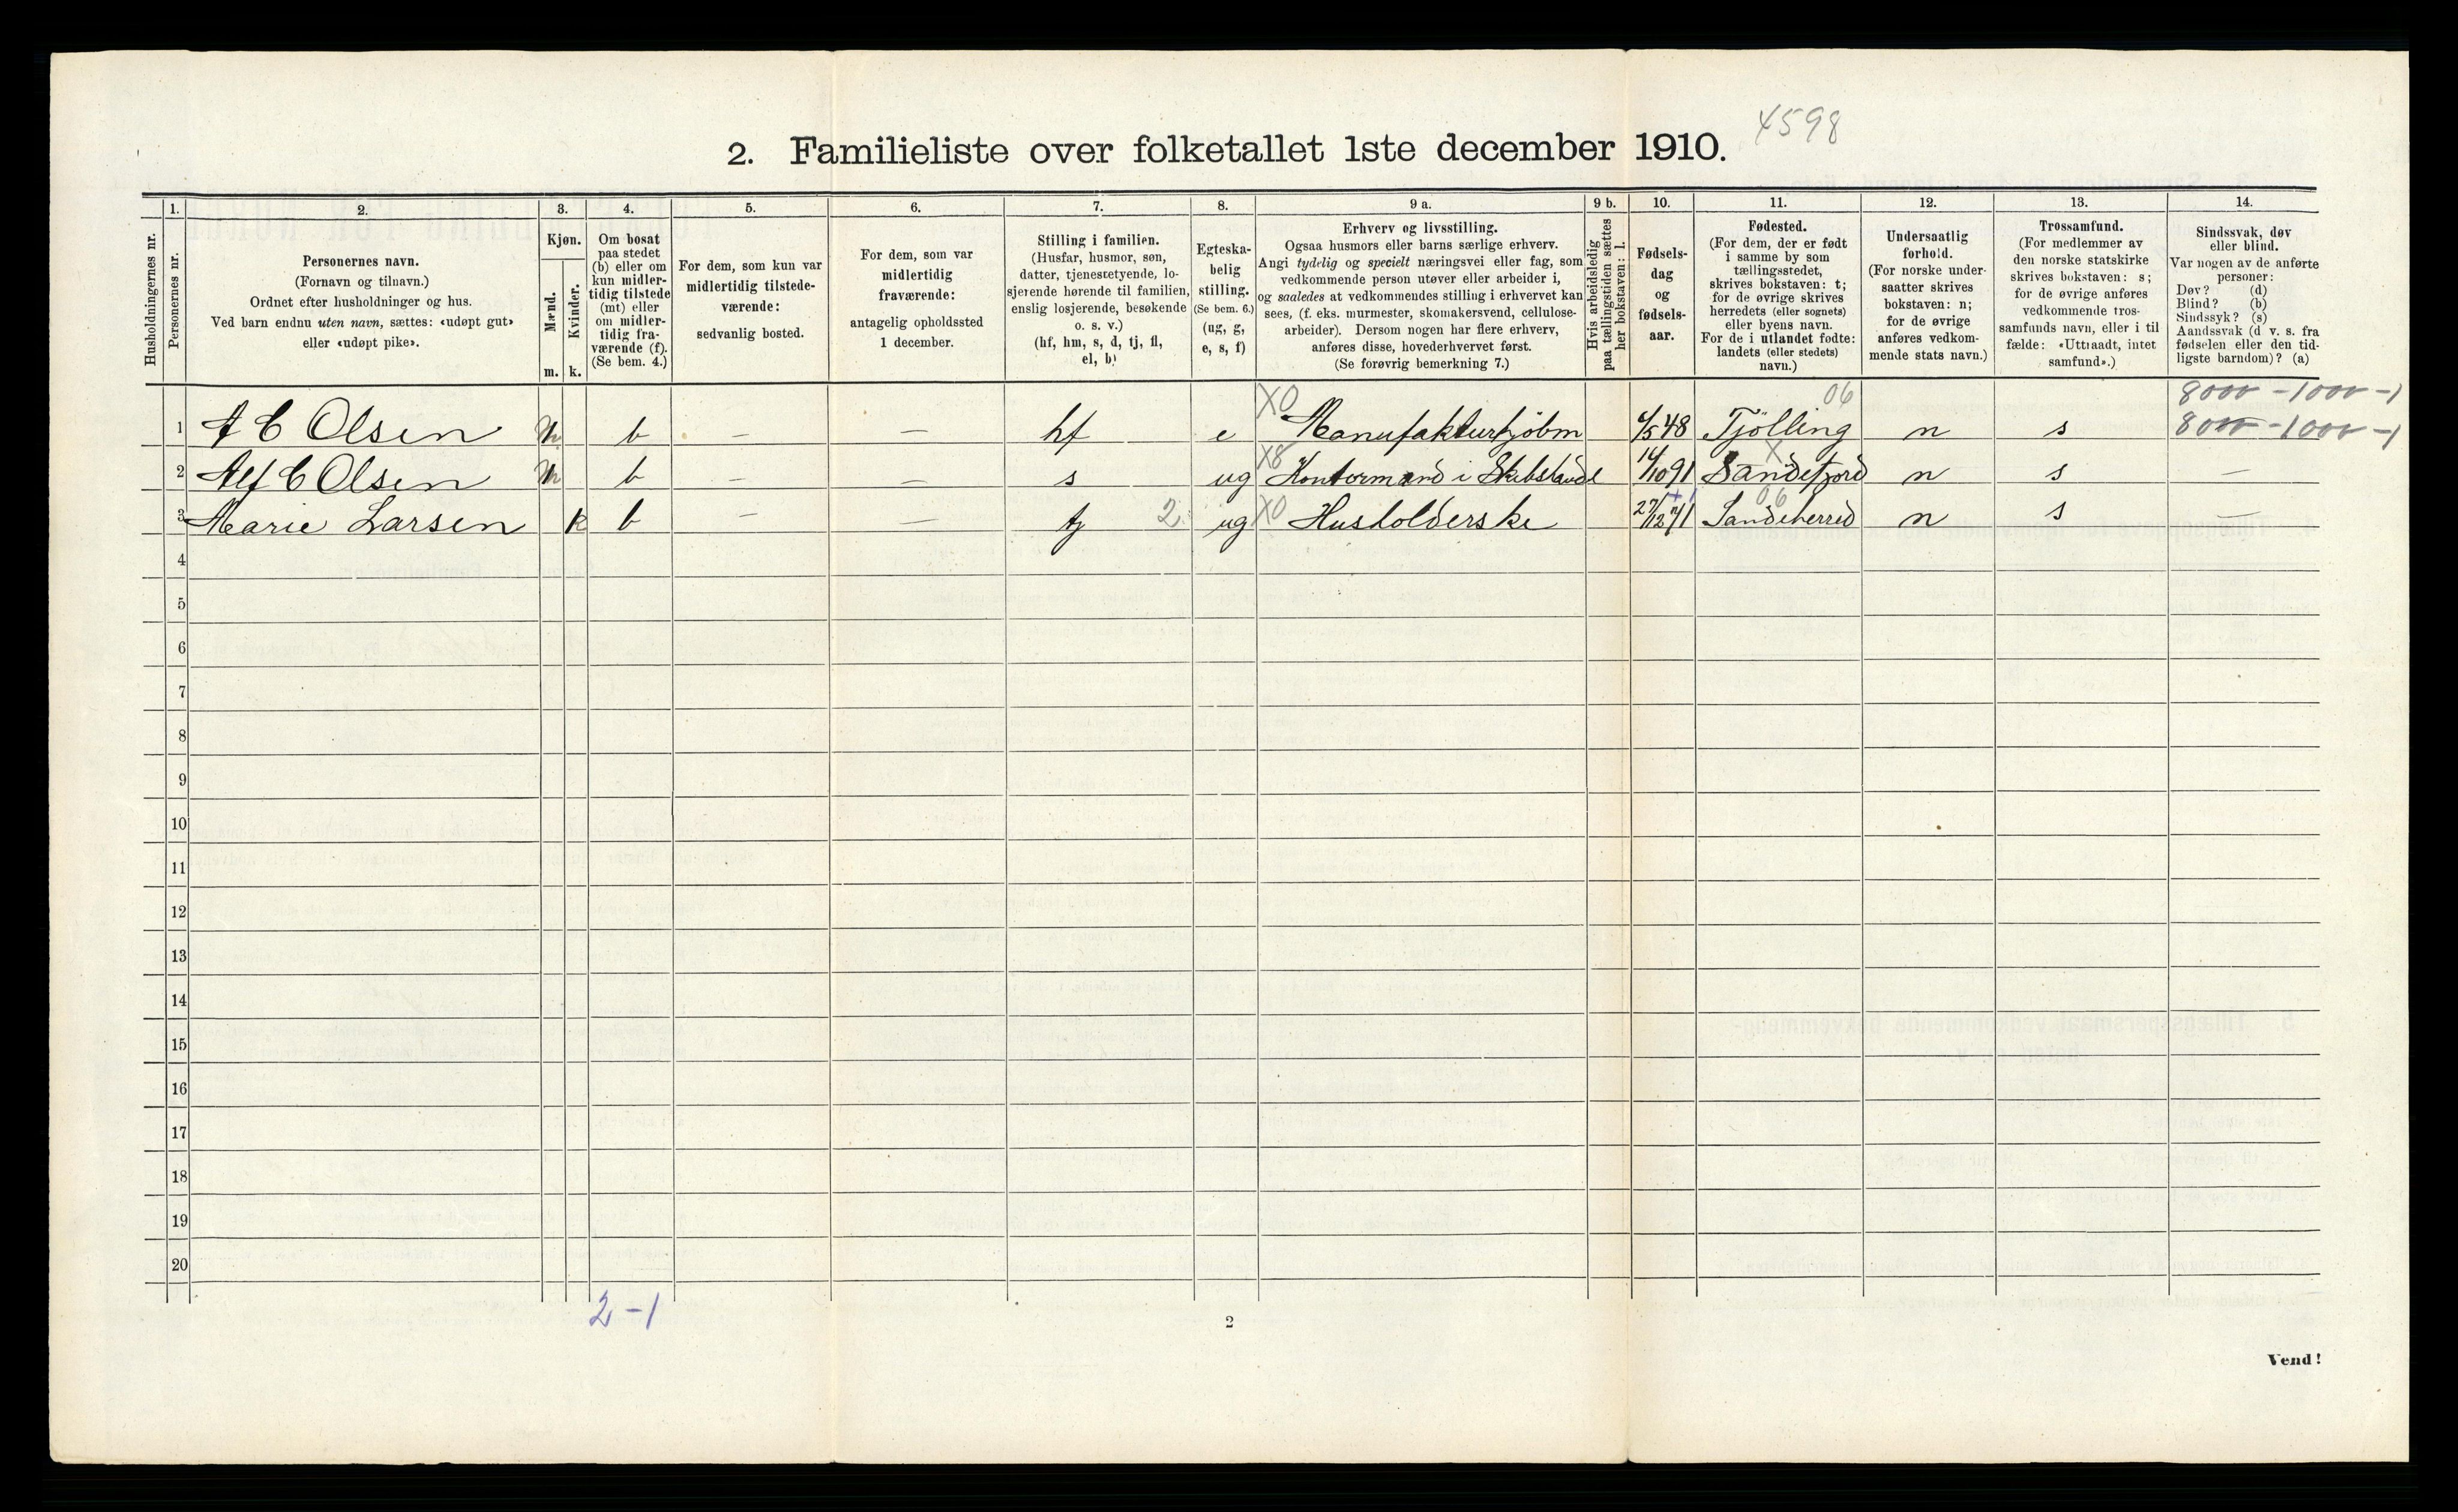 4598
2. Familieliste over folketallet 1ste december 1910.
Husholdningernes nr.
1.
Personernes nr.
2.
Personernes navn.
(Fornavn og tilnavn.)
Ordnet efter husholdninger og hus.
Ved barn endnu uten navn, sættes: «udøpt gut»
eller «udøpt pike».
3.
Kjøn.
Mænd.
m.
Kvinder.
k.
4.
Om bosat
paa stedet
(b) eller om
kun midler-
tidig tilstede
(mt) eller
om midler-
tidig fra-
værende (f).
(Se bem. 4.)
5.
For dem, som kun var
midlertidig tilstede-
værende:
sedvanlig bosted.
6.
For dem, som var
midlertidig
fraværende:
antagelig opholdssted
1 december.
7.
Stilling i familien.
(Husfar, husmor, søn,
datter, tjenestetyende, lo-
sjerende hørende til familien,
enslig losjerende, besøkende
o. s. v.)
(hf, hm, s, d, tj, fl,
el, b)
8.
Egteska-
belig
stilling.
(Se bem. 6.)
(ug, g,
e, s, f)
9 a.
Erhverv og livsstilling.
Ogsaa husmors eller barns særlige erhverv.
Angi tydelig og specielt næringsvei eller fag, som
vedkommende person utøver eller arbeider i,
og saaledes at vedkommendes stilling i erhvervet kan
sees, (f. eks. murmester, skomakersvend, cellulose-
arbeider). Dersom nogen har flere erhverv,
anføres disse, hovederhvervet først.
(Se forøvrig bemerkning 7.)
9 b.
Hvis arbeidsledig
paa tællingstiden sættes
her bokstaven: l.
10.
Fødsels-
dag
og
fødsels-
aar.
11.
Fødested.
(For dem, der er født
i samme by som
tællingsstedet,
skrives bokstaven: t;
for de øvrige skrives
herredets (eller sognets)
eller byens navn.
For de i utlandet fødte:
landets (eller stedets)
navn.)
12.
Undersaatlig
forhold.
(For norske under-
saatter skrives
bokstaven: n;
for de øvrige
anføres vedkom-
mende stats navn.)
13.
Trossamfund.
(For medlemmer av
den norske statskirke
skrives bokstaven: s;
for de øvrige anføres
vedkommende tros-
samfunds navn, eller i til-
fælde: «Uttraadt, intet
samfund».)
14.
Sindssvak, døv
eller blind.
Var nogen av de anførte
personer:
Døv? (d)
Blind? (b)
Sindssyk? (s)
Aandssvak (d v. s. fra
fødselen eller den tid-
ligste barndom)? (a)
X0 06 8000 - 1000 - 1
1 A C Olsen m b — — hf e Manufakturhjøbm 6/5 48 Tjølling n s 8000 - 1000 - 1
X8 X
2 Alf C Olsen m b — — s ug Kontormand i Skibshandl 14/10 91 Sandefjord n s —
06
3 Marie Larsen k b — — tj 2 ug X0 Husholderske 27/12 71 Sandeherred n s —
4
5
6
7
8
9
10
11
12
13
14
15
16
17
18
19
20
2 - 1
2
Vend!